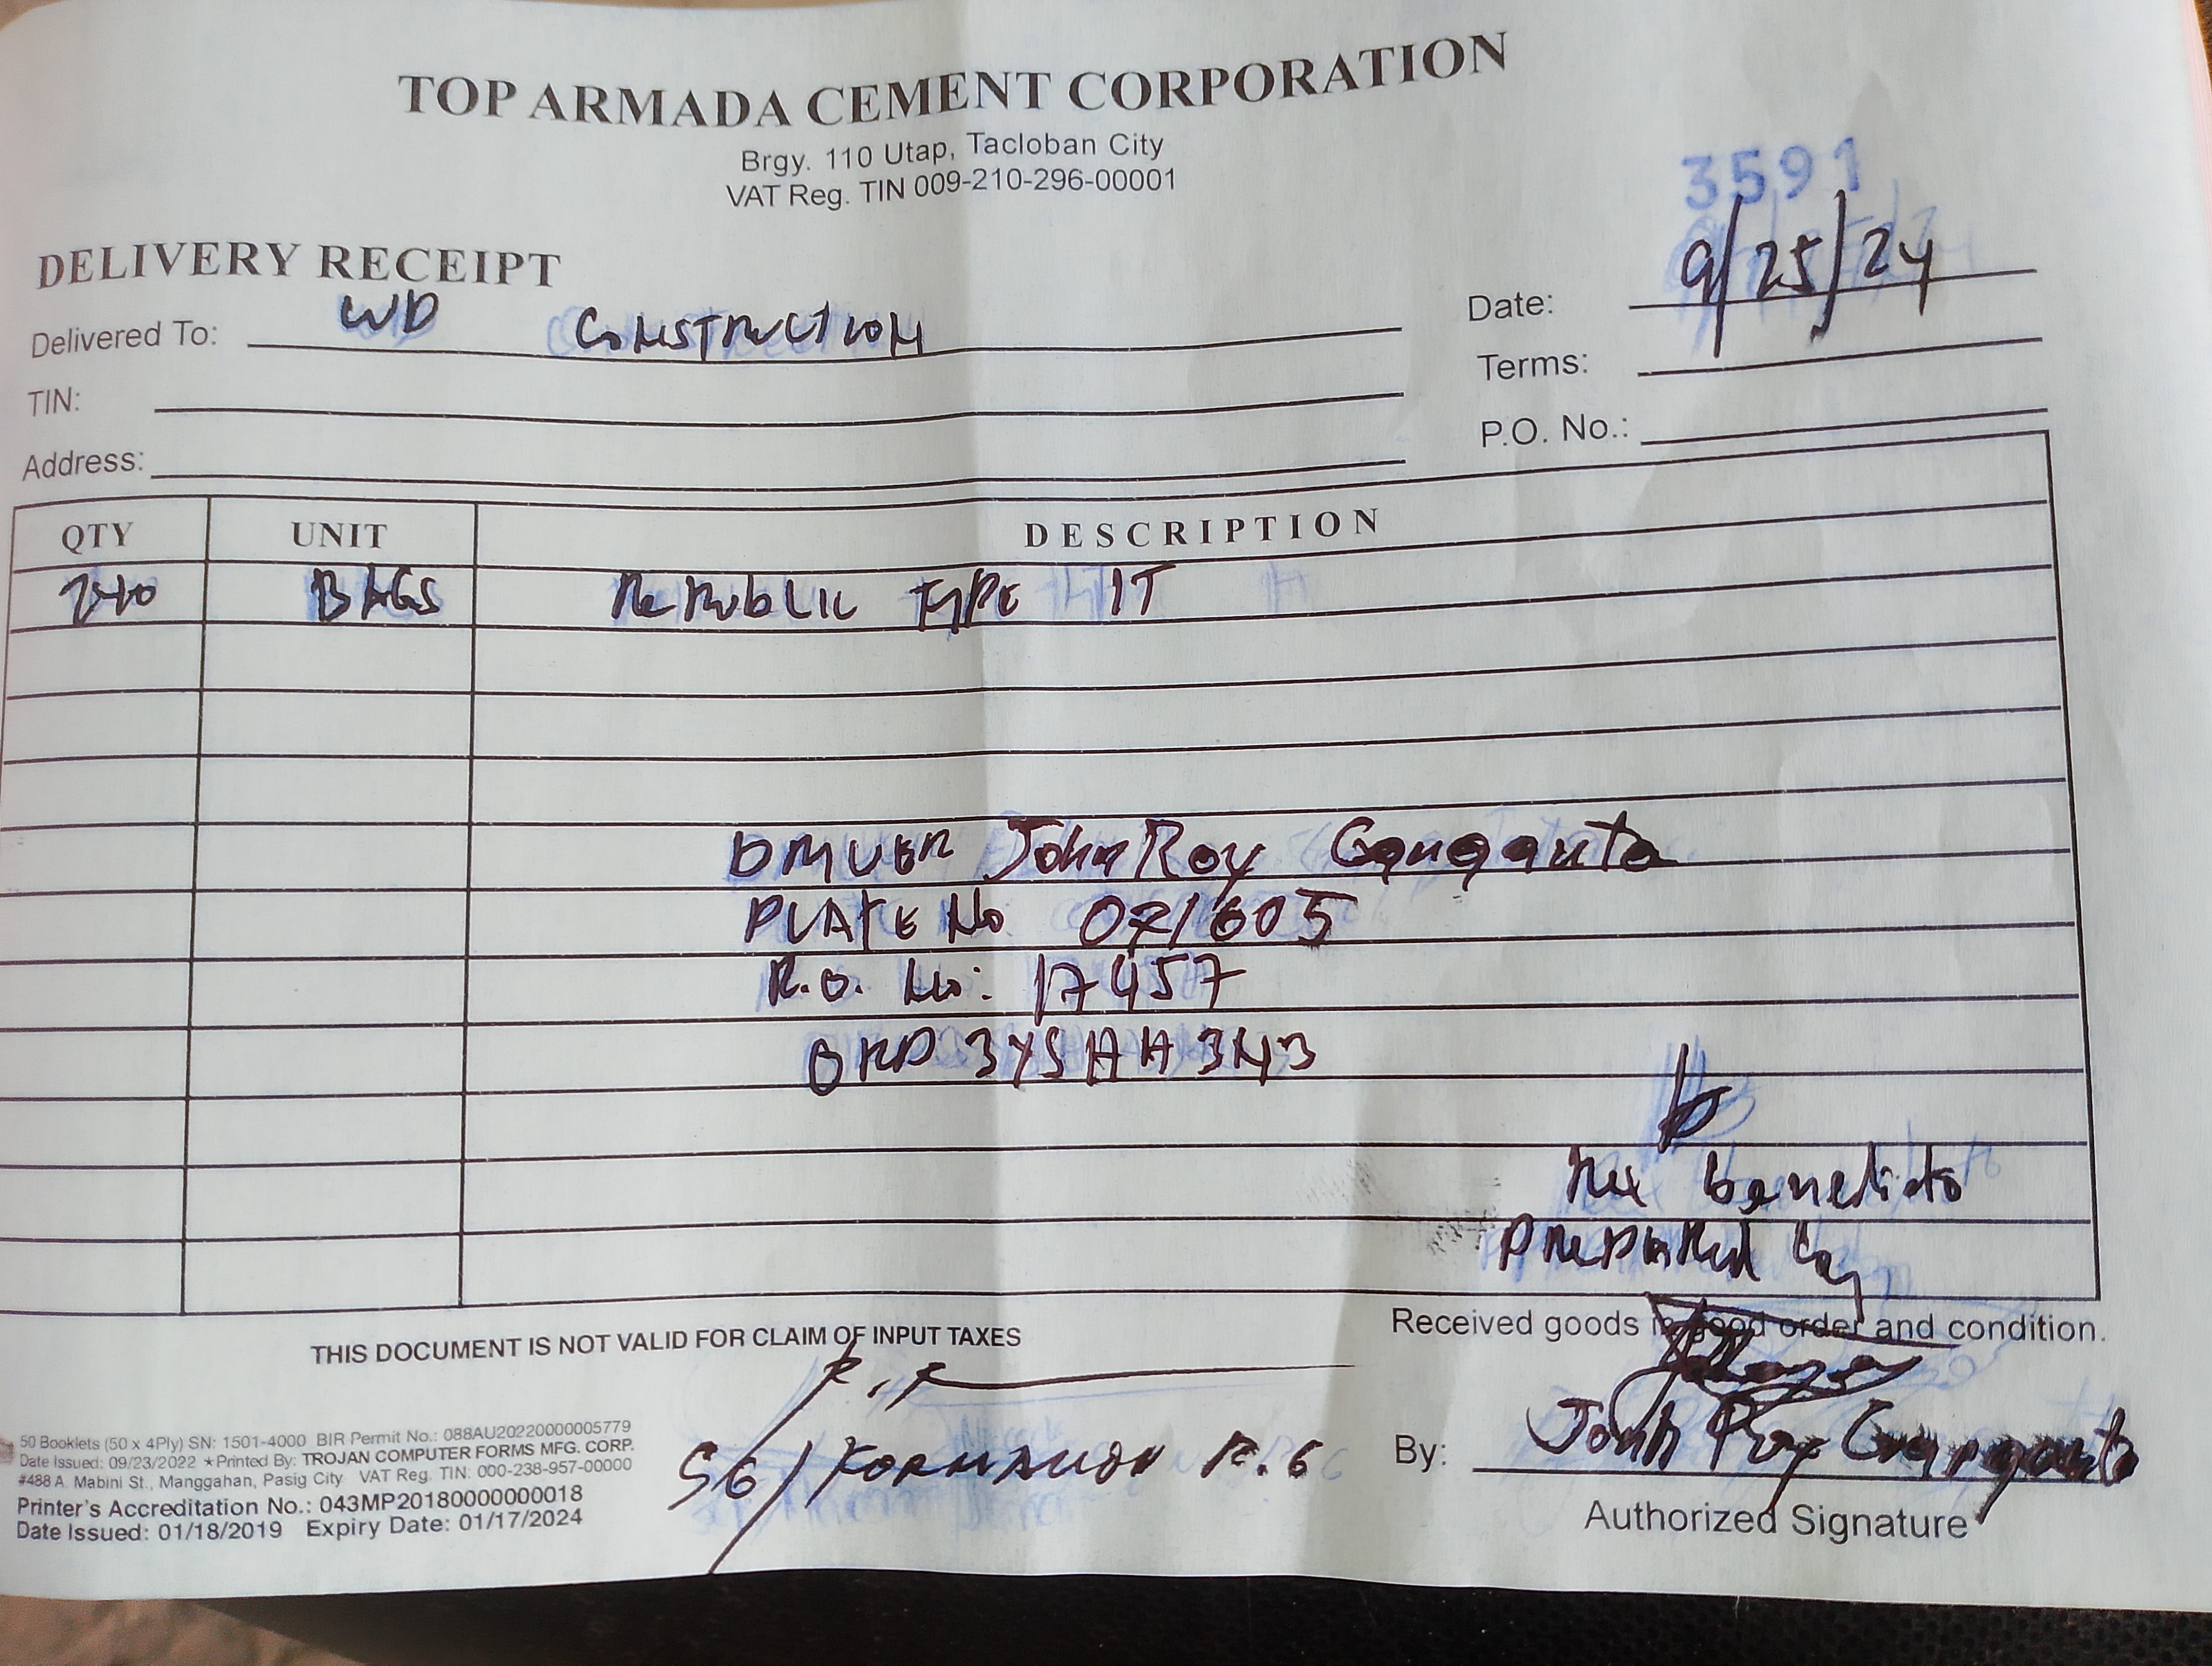 TOP ARMADA CEMENT CORPORATION
Brgy. 110 Utap, Tacloban City
VAT Reg. TIN 009-210-296-00001
3591
DELIVERY RECEIPT
Date: 9/25/24
Delivered To: WD CONSTRUCTION
Terms:
TIN:
P.O. No.:
Address:
QTY UNIT DESCRIPTION
240 BAGS REPUBLIC TYPE 1T
DRIVER John Roy Ganganta
PLATE No 071605
R.O. No: 17457
ORD 3YSHH3N3
Rex Benedicto
PREPARED by
THIS DOCUMENT IS NOT VALID FOR CLAIM OF INPUT TAXES
Received goods in good order and condition.
50 Booklets (50 x 4Ply) SN: 1501-4000 BIR Permit No.: 088AU20220000005779
Date Issued: 09/23/2022 ★ Printed By: TROJAN COMPUTER FORMS MFG. CORP.
#488 A. Mabini St., Manggahan, Pasig City VAT Reg. TIN: 000-238-957-00000
Printer's Accreditation No.: 043MP20180000000018
Date Issued: 01/18/2019 Expiry Date: 01/17/2024
SG/ R.G
By: John Roy Ganganta
Authorized Signature